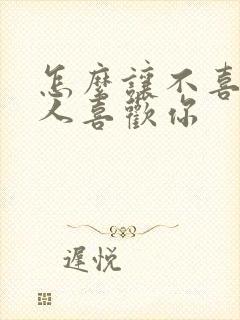 怎麼讓不喜
人喜歡你
遲悅